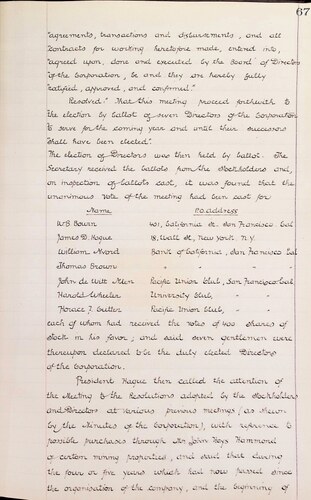 67
"agreements, transactions and disbursements, and all
"contracts for working heretofore made, entered into,
"agreed upon, done and executed by the Board of Directors
"of the Corporation, be and they are hereby fully
"ratified, approved, and confirmed."
Resolved: "That this meeting proceed forthwith to
"the election by ballot of seven Directors of the Corporation
"to serve for the coming year and until their successors
"shall have been elected."
The election of Directors was then held by ballot. The
Secretary received the ballots from the Stockholders and,
on inspection of ballots cast, it was found that the
unanimous vote of the meeting had been cast for
Name P.O. address
W B Bourn 401, California St., San Francisco, Cal
James D. Hague 18, Wall St., New York N.Y.
William Alvord Bank of California, San Francisco Cal
Thomas Brown " " " "
John de Witt Allen Pacific Union Club, San Francisco Cal
Harold Wheeler University Club, " "
Horace F. Cutter Pacific Union Club, " "
each of whom had received the votes of shares of
stock in his favor; and said seven gentlemen were
thereupon declared to be the duly elected Directors
of the Corporation.
President Hague then called the attention of
the Meeting to the Resolutions adopted by the Stockholders
and Directors at various previous meetings (as shown
by the Minutes of the Corporation), with reference to
possible purchases through Mr John Hays Hammond
of certain mining properties, and said that during
the four or five years which had now passed since
the organisation of the company, and the beginning of